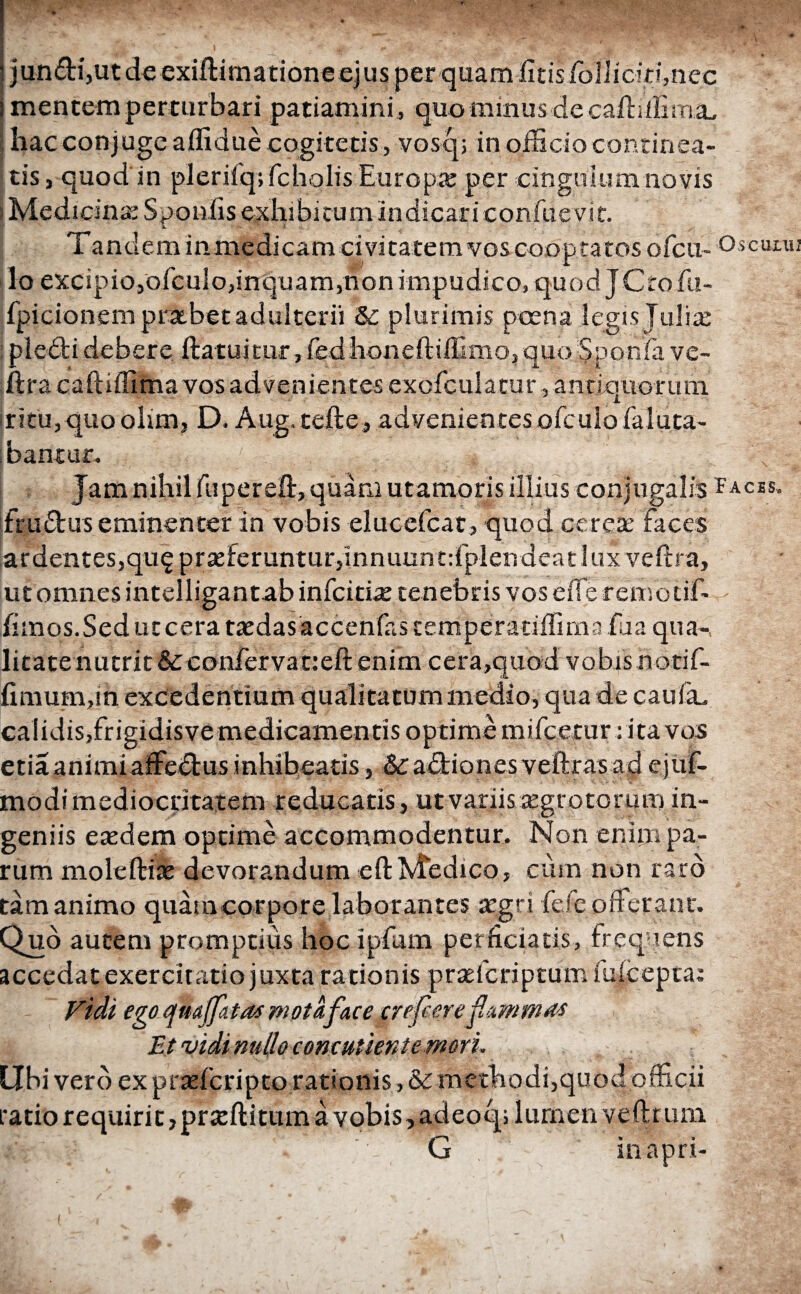 juncti,ut de exiſtimatione ejus per quam ſitis ſolliciti,nec
mentem perturbari patiamini, quo minus de caſtiſſima
hac conjuge aſſidue cogitetis, vosq; in officio contínea-
tis, quod in pleriſq; ſcholis Europæ per cingulum novis
Medicinæ Sponſis exhibitum indicari conſuevit.
Tandem in medicam civitatem vos cooptatos oſcu- Osculum
lo excipio,oſculo,inquam,non impudico, quod JCto ſu-
ſpicionem præbet adulterii & plurimis pœna legis Juliæ
plecti debere ſtatuitur, ſed honeſtiſſimo, quo Sponſa ve-
ſtra caſtiſſima vos advenientes exoſculatur, antiquorum
ritu, quo olim, D. Aug. teſte, advenientes oſculo ſaluta-
bantur.
Jam nihil ſupereſt, quàm ut amoris illius conjugalis Faces.
fructus eminenter in vobis eluceſcat, quod cereæ faces
ardentes,quę præferuntur,innuunt:ſplendeat lux veſtra,
ut omnes intelligant ab inſcitiæ tenebris vos eſſe remotiſ-
ſimos. Sed ut cera tædas accenſas temperatiſſima ſua qua-
litate nutrit & conſervat:eſt enim cera,quod vobis notiſ-
ſimum,in excedentium qualitatum medio, qua de cauſa
calidis,frigidisve medicamentis optimè miſcetur: ita vos
etiã animi affectus inhibeatis, & actiones veſtras ad ejuſ-
modi mediocritatem reducatis, ut variis ægrotorum in-
geniis eædem optimè accommodentur. Non enim pa-
rum moleſtiæ devorandum eſt Medico, cùm non rarò
tàm animo quàm corpore laborantes ægri ſeſe offerant.
Quò autem promptiùs hoc ipſum perficiatis, frequens
accedat exercitatio juxta rationis præſcriptum ſuſcepta:
Vidi ego quaſſatas motâ face creſcere flammas
Et vidi nullo concutiente mori.
Ubi verò ex præſcripto rationis, & methodi,quod officii
ratio requirit, præſtitum à vobis, adeoq; lumen veſtrum
G in apri-